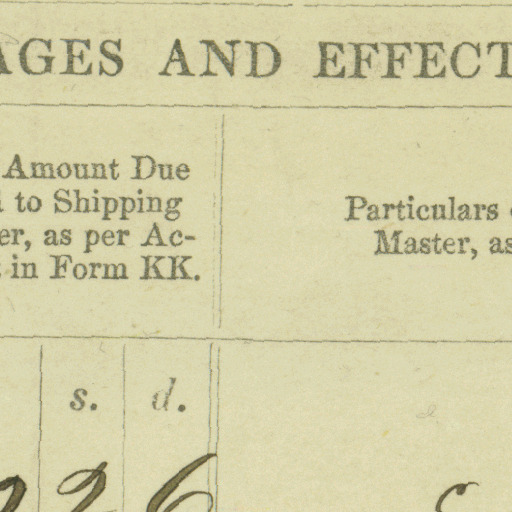 AGES AND EFFECT
Amount Due
to Shipping
er, as per Ac-
in Form KK.
Particulars
Master, as
s. d.
2 6